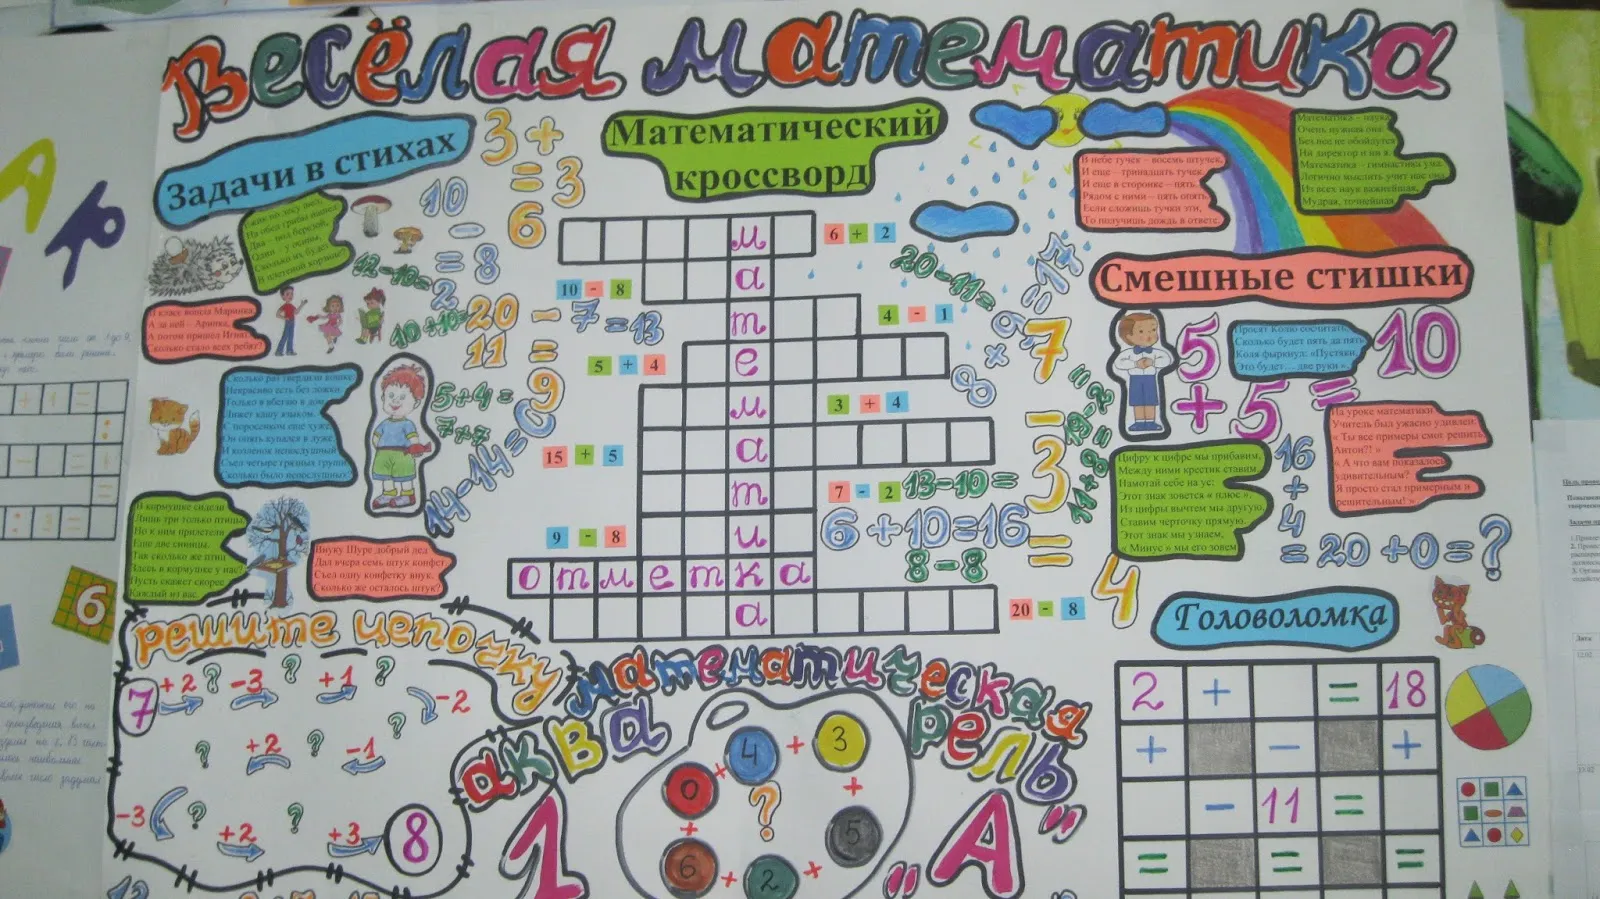 Весёлая математика
Задачи в стихах
Два – под берёзой,
Один – у осины,
Сколько их будет
В плетёной корзине?
В класс вошла Маринка,
А за ней – Аринка,
А потом пришёл Игнат.
Сколько стало всех ребят?
Сколько раз твердили кошке:
Некрасиво есть без ложки.
Только я вбегаю в дом,
Лижет кашу языком.
С поросёнком ещё хуже,
Он опять купался в луже.
И козлёнок непослушный
Съел четыре грязных груши.
Сколько было непослушных?
В кормушке сидели
Лишь три только птицы,
Но к ним прилетели
Еще две синицы.
Так сколько же птиц
Здесь в кормушке у нас?
Пусть скажет скорее
Каждый из вас.
Внуку Шуре добрый дед
Дал вчера семь штук конфет
Съел одну конфетку внук.
Сколько же осталось штук?
3 +
= 3
6
10
- = 8
12-10=
2
10+10=
20 -
11 =
9
7 = 13
5+4=
7+7
14-14=0
Математический
кроссворд
м
6 + 2
а
10 - 8
т
4 - 1
е
5 + 4
м
3 + 4
а
15 + 5
т
7 - 2
и
9 - 8
отметка
а
20 - 8
20-11=
8 + 9 = 17
7
-
3
=
4
13-10=
6+10=16
8-8
В небе тучек – восемь штучек,
И ещё – тринадцать тучек.
И ещё в сторонке – пять.
Рядом с ними – пять опять.
Если сложишь тучки эти,
То получишь дождь в ответе.
Математика – наука
Очень нужная она
Без нее не обойдутся
Ни директор и ни я.
Математика – гимнастика ума.
Логично мыслить учит нас она.
Из всех наук важнейшая,
Мудрая, точнейшая
Смешные стишки
5 + 5 = 10
Просят Колю сосчитать,
Сколько будет пять да пять.
Коля фыркнул: «Пустяки,
Это будет… две руки».
На уроке математики
Учитель был ужасно удивлен:
« Ты все примеры смог решить
Антон?! »
« А что вам показалось
удивительным?
Я просто стал примерным и
решительным! ».
Цифру к цифре мы прибавим,
Между ними крестик ставим.
Намотай себе на ус:
Этот знак зовется « плюс ».
Из цифры вычтем мы другую,
Ставим чёрточку прямую.
Этот знак мы узнаем,
« Минус » мы его зовем
16
+
4
= 20 +0 = ?
решите цепочку
7 +2 ? -3 ? +1 ? -2
? +2 ? -1 ?
-3 ? +2 ? +3 8
математическая
акварель
4 + 3
0 + ? +
+ 5
6 + 2 +
1 „А”
Головоломка
2 + = 18
+ - +
- 11 =
= = =
6